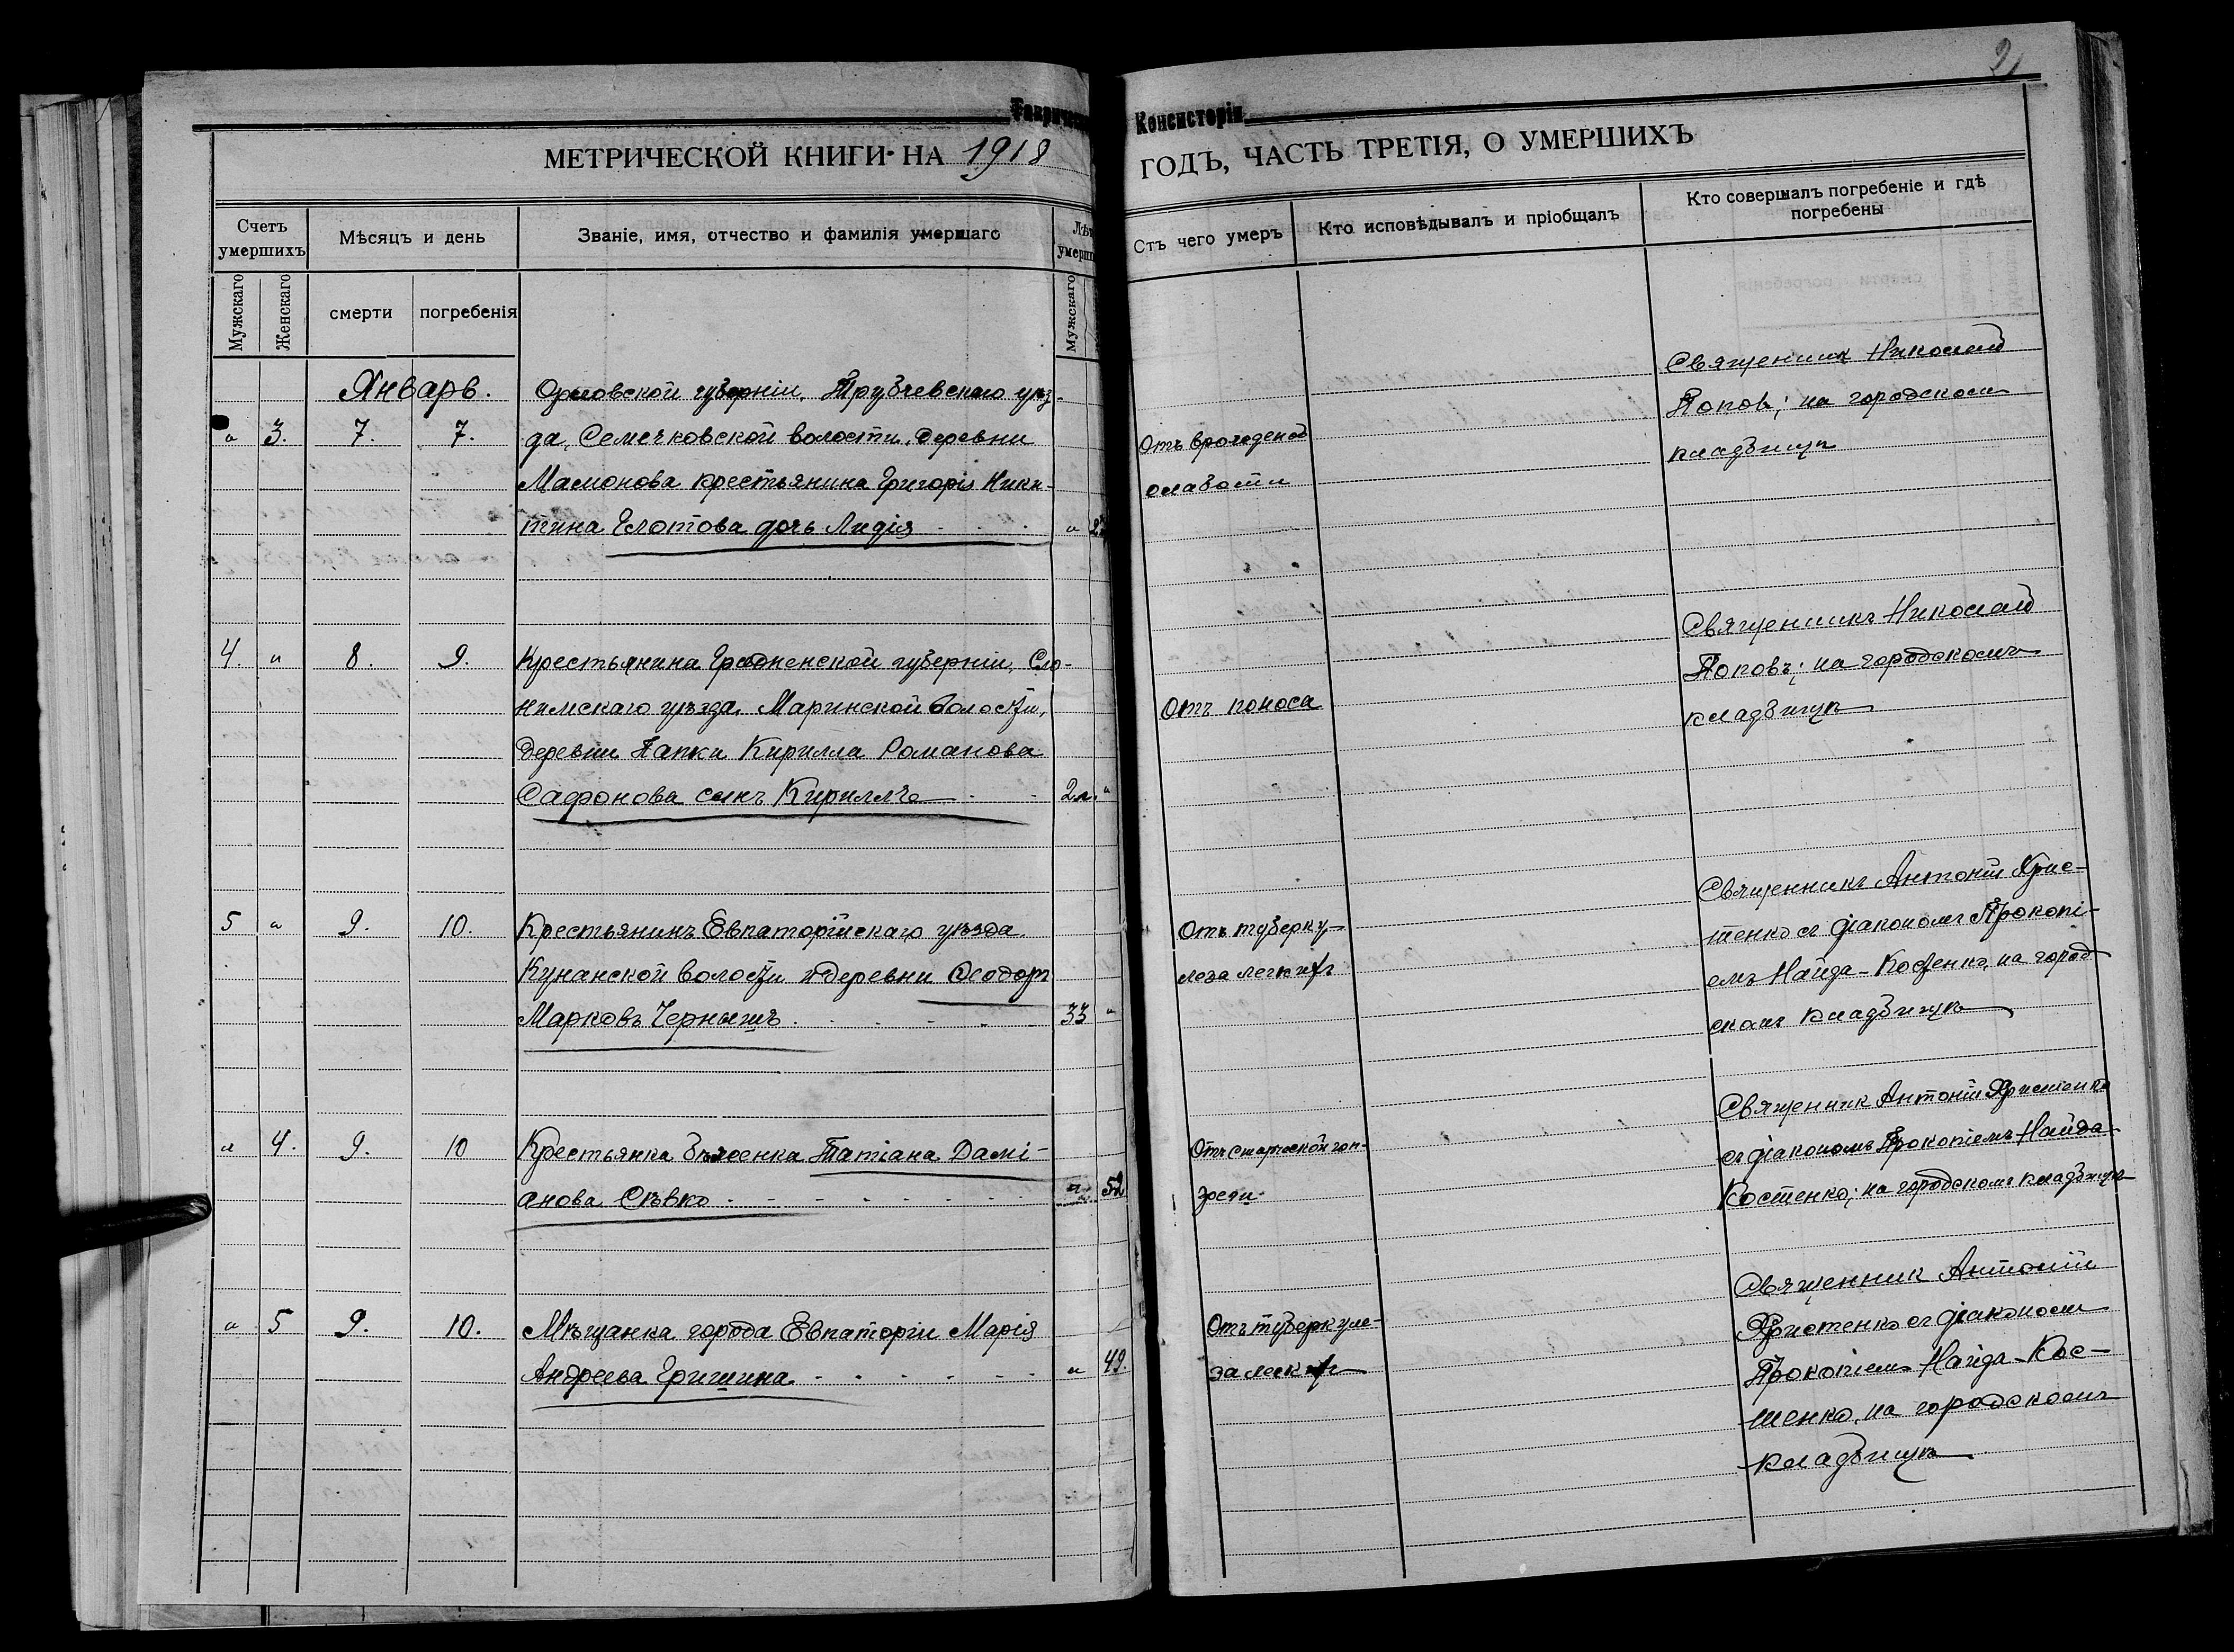 2
Консисторіи
МЕТРИЧЕСКОЙ КНИГИ НА 1918
ГОДЪ, ЧАСТЬ ТРЕТІЯ, О УМЕРШИХЪ
Счетъ умершихъ
Мѣсяцъ и день
Званіе, имя, отчество и фамилія умершаго
Мужскаго
Женскаго
смерти
погребенія
Мужскаго
Отъ чего умеръ
Кто исповѣдывалъ и пріобщалъ
Кто совершалъ погребеніе и гдѣ
погребены
Январь.
Орловской губерніи, Трубчевскаго уѣз-
" 3. 7. 7. да, Семечковской волости, деревни
Мамонова крестьянина Григорія Ники-
тина дочь Лидія "
Отъ врожденой
слабости
Священник Николай
Попов; на городском
кладбищѣ
4. " 8. 9. Крестьянина Гродненской губерніи, Сло-
нимскаго уѣзда, Маринской волости,
деревни Папки Кирилла Романова
Сафонова сынъ Кириллъ 2 л. "
Отъ поноса
Священникъ Николай
Поповъ; на городскомъ
кладбищѣ
5 " 9. 10. Крестьянинъ Евпаторійскаго уѣзда,
Кунанской волости и деревни Ѳеодоръ
Марковъ Чернышъ 33 "
Отъ туберку-
леза легкихъ
Священникъ Антоній Хрис-
тенко съ діакономъ Прокопі-
емъ Найда-Костенко, на город
скомъ кладбищѣ
" 4. 9. 10 Крестьянка Татіана Дамі-
анова Сѣвко " 52
Отъ старческой ган-
грены
Священник Антоній Христенко
съ діакономъ Прокопіемъ Найда
Костенко; на городскомъ кладбищѣ
" 5 9. 10. Мѣщанка города Евпаторіи Марія
Андреева Гришина " 49.
Отъ туберкуле-
за легкихъ
Священник Антоній
Христенко съ діакономъ
Прокопіемъ Найда-Кос-
тенко, на городскомъ
кладбищѣ